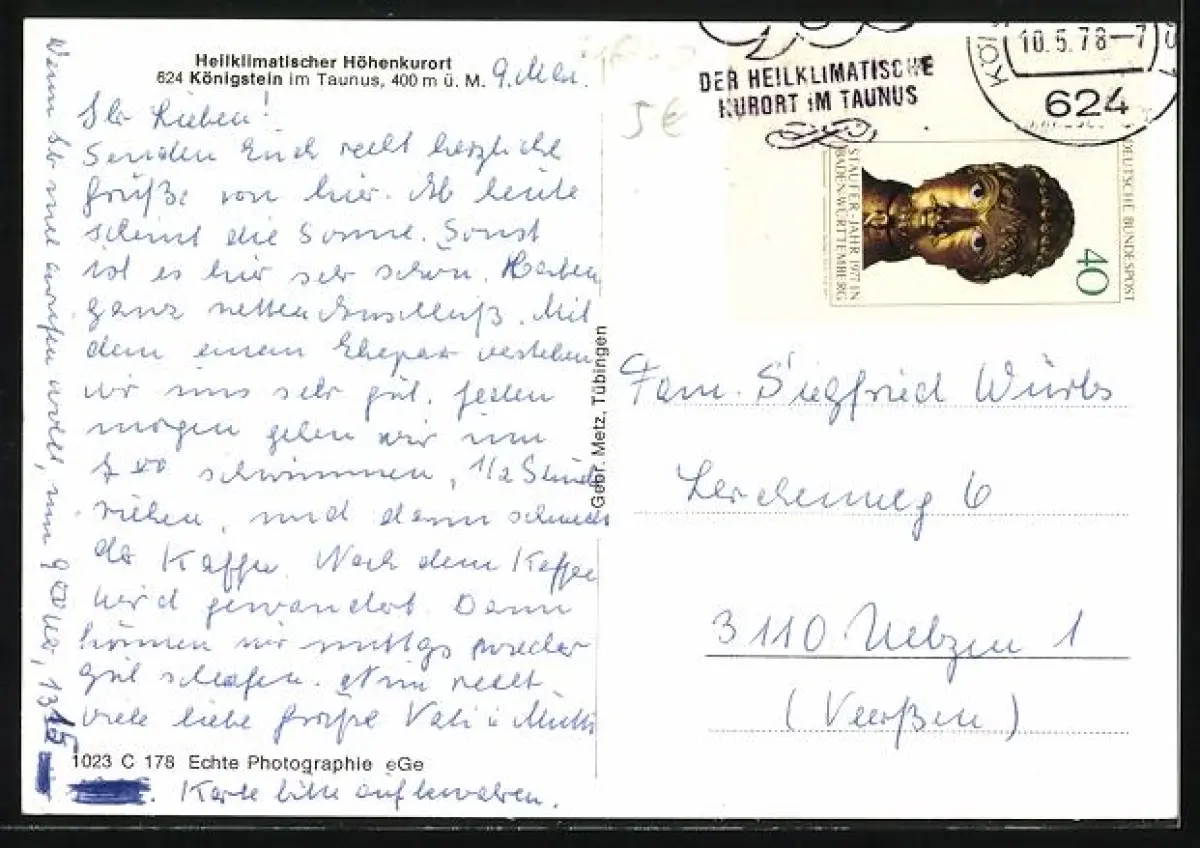 Heilklimatischer Höhenkurort
624 Königstein im Taunus, 400 m ü. M.
9. Mai.
Ihr Lieben!
Senden Euch recht herzliche
Grüße von hier. Ab heute
scheint die Sonne. Sonst
ist es hier sehr schön. Haben
ganz netten Anschluß. Mit
dem einem Ehepaar verstehen
wir uns sehr gut. Jeden
morgen gehen wir um
7 00 schwimmen, 1/2 Stunde
ruhen, und dann schmeckt
der Kaffee. Nach dem Kaffee
wird gewandert. Dann
können wir mittgs wieder
gut schlafen. Nun recht
viele liebe Grüße Vati u Mutti
1023 C 178 Echte Photographie eGe
Karte bitte aufbewahren.
Wenn Ihr mal anrufen wollt, um 9 00 Uhr, 13 15
Gebr. Metz, Tübingen
5€
DER HEILKLIMATISCHE
KURORT IM TAUNUS
10.5.78-7
624
DEUTSCHE BUNDESPOST
40
STAUFER-JAHR 1977 IN
BADEN-WÜRTTEMBERG
Fam. Siegfried Würbs
Lerchenweg 6
3110 Uelzen 1
(Veerßen)